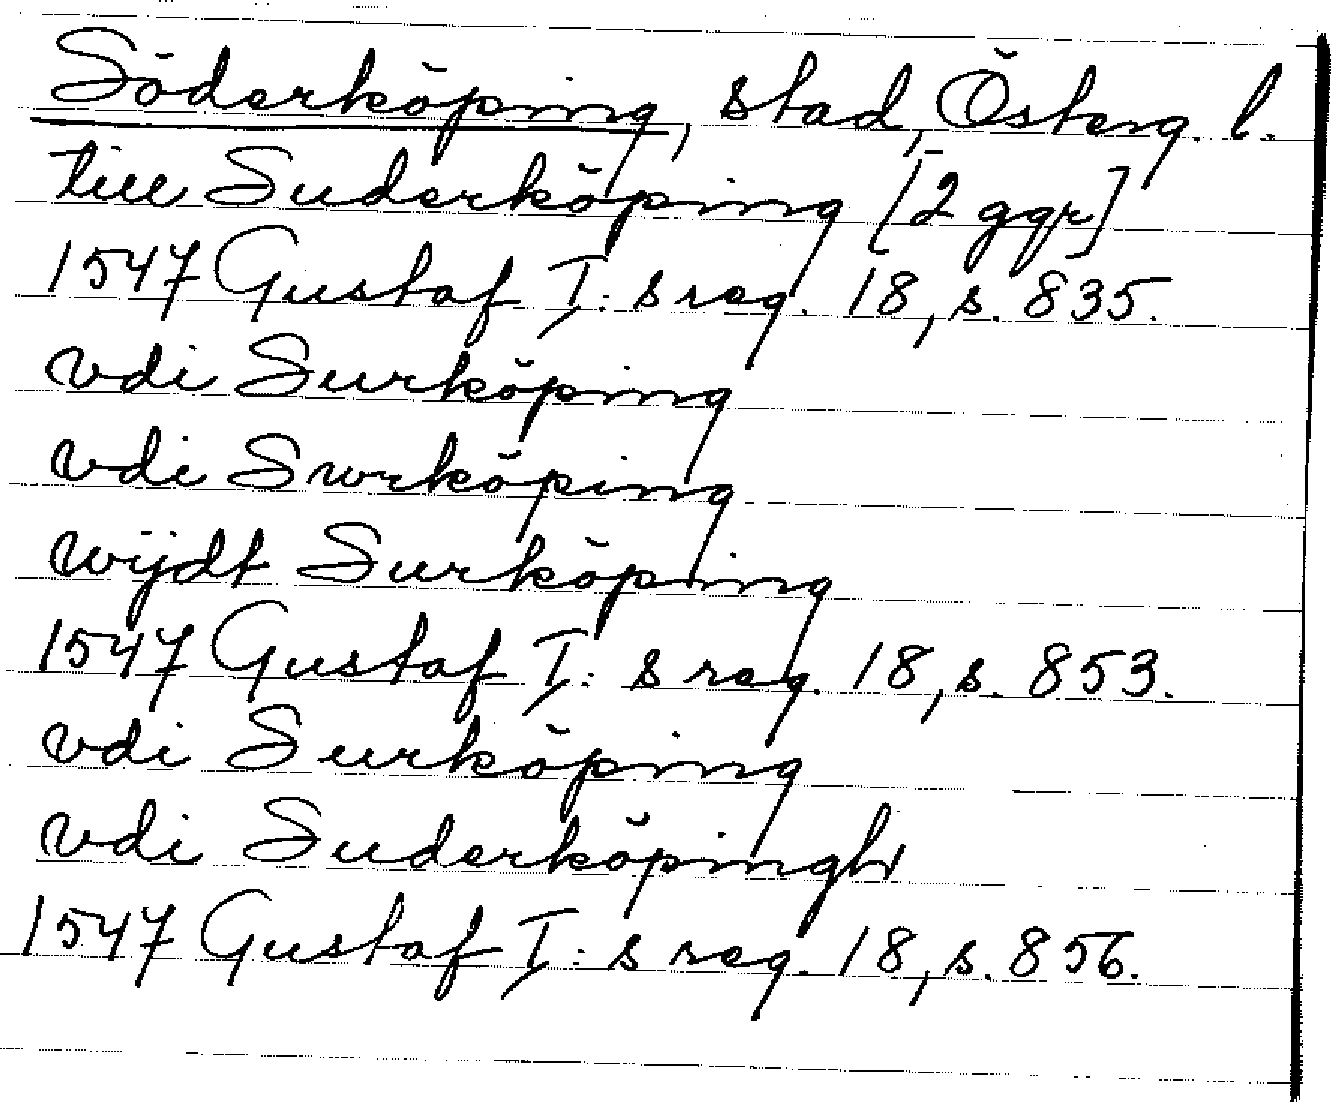 Söderköping, stad, Österg. l.
till Suderköping [2 ggr]
1547 Gustaf I: s reg. 18, s. 835.
vdi Surköping
vdi Swrköping
wijdt Surköping
1547 Gustaf I: s reg. 18, s. 853.
vdi Surköping
vdi Suderköpingh
1547 Gustaf I: s reg. 18, s. 856.